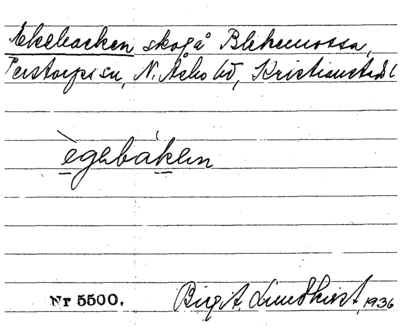 Ekebacken skog å Blekemossa,
Perstorp sn, N. Åsbo hd, Kristianstads l
ègebáken
Nr 5500. Birgit Lundkvist, 1936